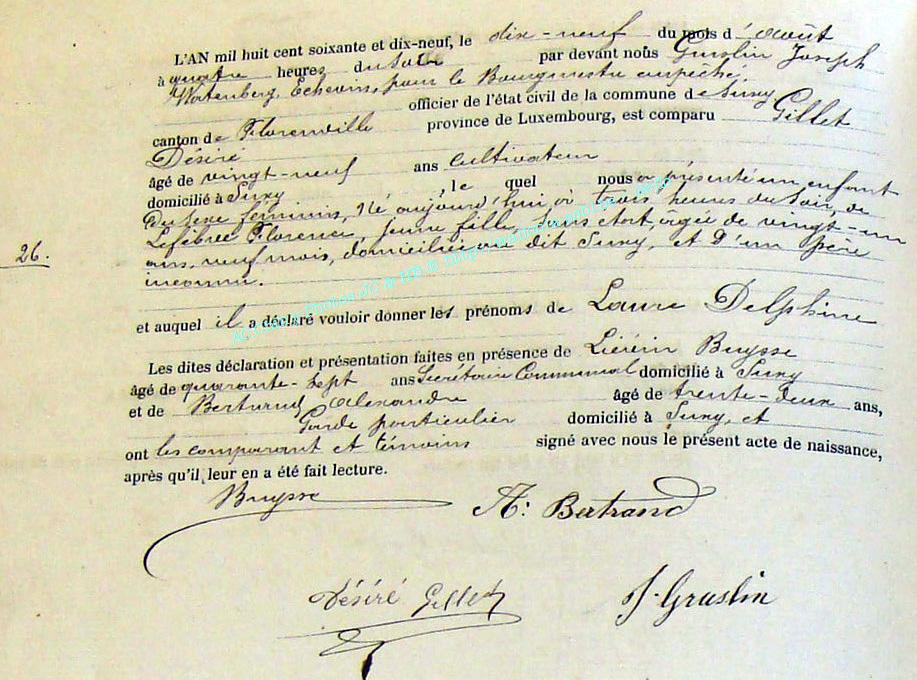 L'AN mil huit cent soixante et dix-neuf, le dix-neuf du mois d'août
à quatre heures du soir par devant nous Gruslin Joseph
Echevin, pour le Bourgmestre empêché,
officier de l'état civil de la commune de Suxy
canton de Florenville province de Luxembourg, est comparu Gillet
Désiré
âgé de vingt-neuf ans cultivateur
domicilié à Suxy, le quel nous a présenté un enfant
du sexe féminin, Né aujourd'hui, à trois heures du soir, de
Lefebvre Florence, jeune fille, sans état, agée de vingt-un
ans, neuf mois, domiciliée au dit Suxy, et D'un père
inconnu.
26.
et auquel il a déclaré vouloir donner les prénoms de Laure Delphine
Les dites déclaration et présentation faites en présence de Buysse
âgé de quarante-sept ans Secrétaire Communal domicilié à Suxy
et de Bertrand Alexandre âgé de trente-deux ans,
Garde particulier domicilié à Suxy, et
ont les comparant et témoins signé avec nous le présent acte de naissance,
après qu'il leur en a été fait lecture.
Buysse
A: Bertrand
Désiré Gillet
J. Gruslin